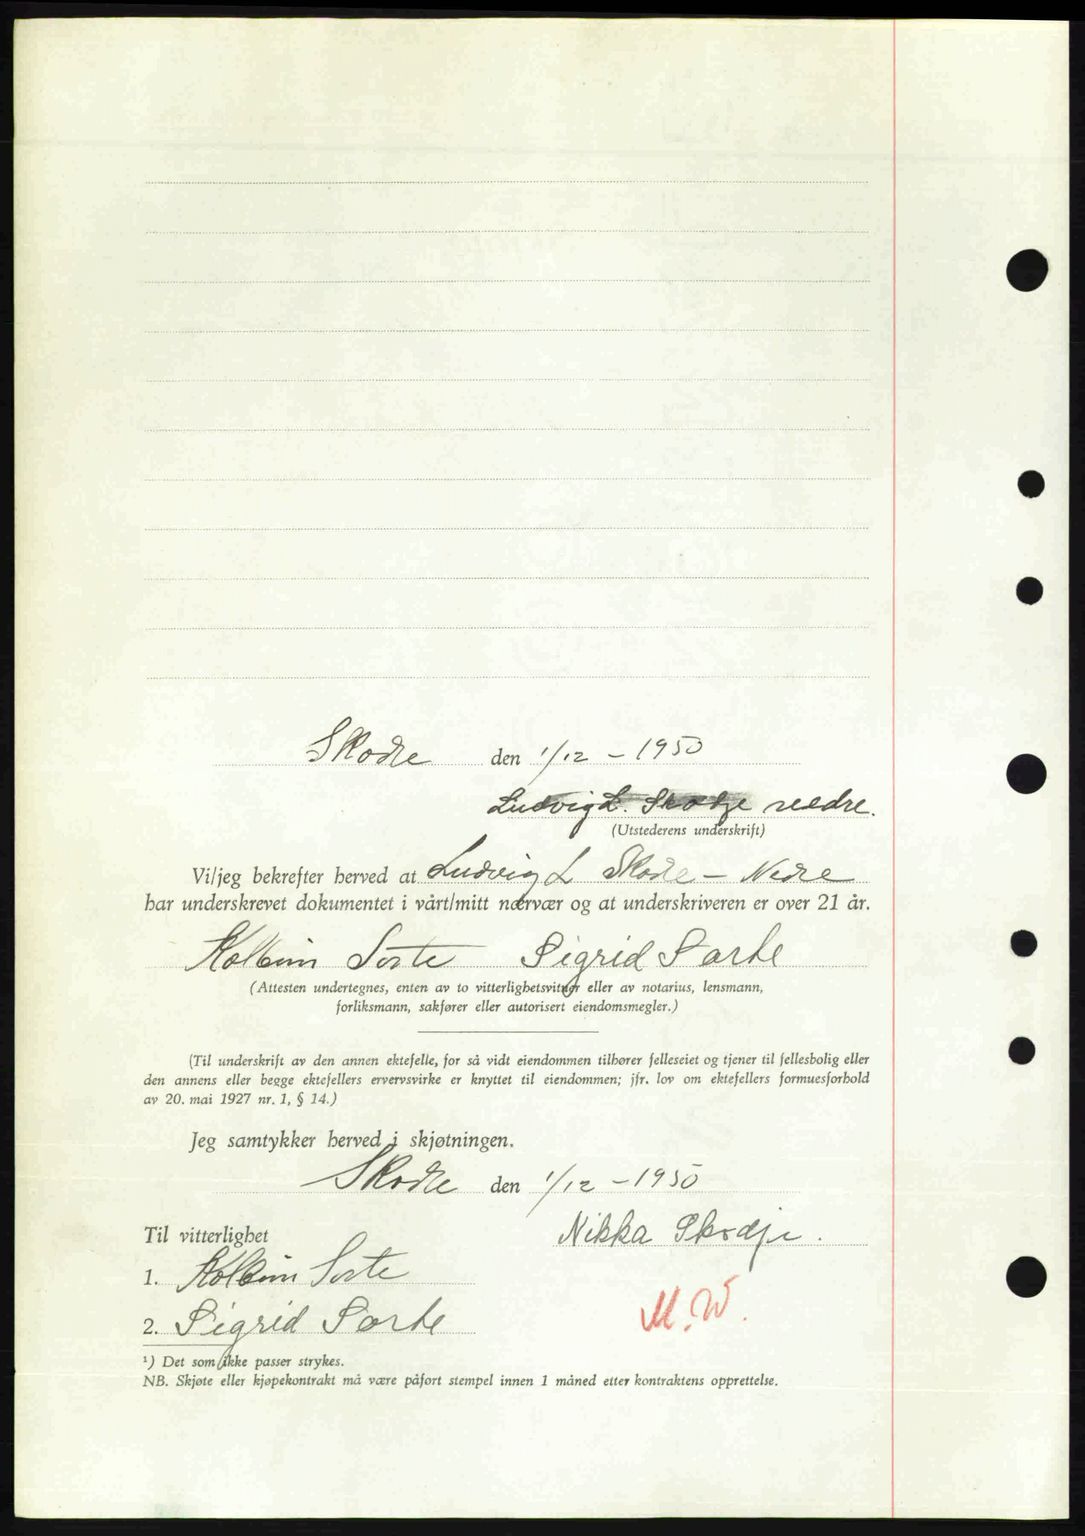 Skodje den 1/12 - 1950
Ludvig L. Skodje nedre.
(Utstederens underskrift)
Vi/jeg bekrefter herved at Ludvig L Skodje - Nedre
har underskrevet dokumentet i vårt/mitt nærvær og at underskriveren er over 21 år.
Kolbein Sorte Sigrid Sorte
(Attesten undertegnes, enten av to vitterlighetsvitner eller av notarius, lensmann,
forliksmann, sakfører eller autorisert eiendomsmegler.)
(Til underskrift av den annen ektefelle, for så vidt eiendommen tilhører felleseiet og tjener til fellesbolig eller
den annens eller begge ektefellers ervervsvirke er knyttet til eiendommen; jfr. lov om ektefellers formuesforhold
av 20. mai 1927 nr. 1, § 14.)
Jeg samtykker herved i skjøtningen.
Skodje den 1/12 - 1950
Til vitterlighet
Nikka Skodje.
1. Kolbein Sorte
2. Sigrid Sorte
M.W.
¹) Det som ikke passer strykes.
NB. Skjøte eller kjøpekontrakt må være påført stempel innen 1 måned etter kontraktens opprettelse.